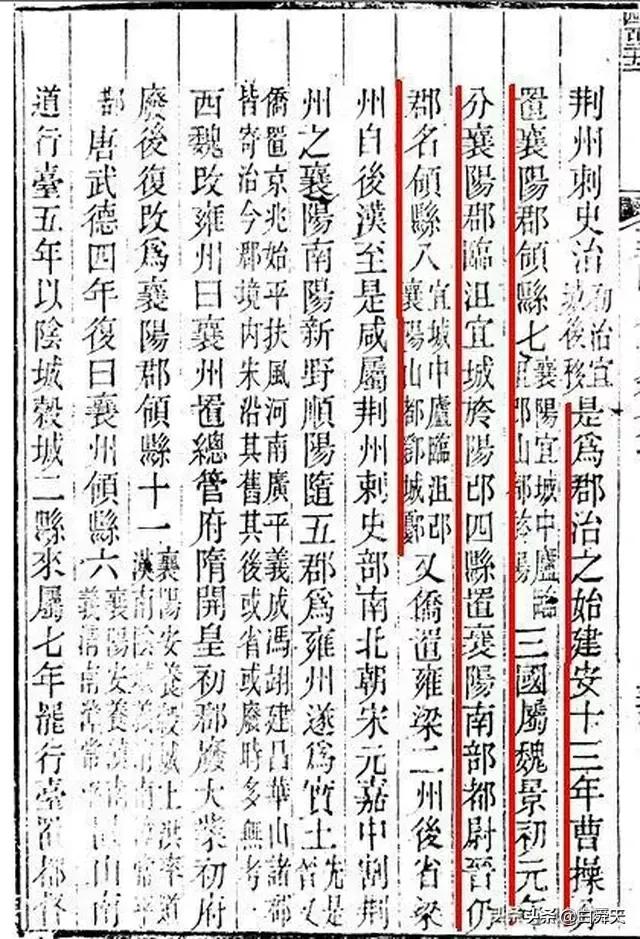 荆州刺史治初治宜城後移是爲郡治之始建安十三年曹操
置襄陽郡領縣七襄陽宜城中廬臨山都三國屬魏景初元年
分襄陽郡臨沮宜城於陽邔四縣置襄陽南部都尉晉仍
郡名領縣八宜城中廬臨沮邔襄陽山都鄧城鄾又僑置雍梁二州後省梁
州自後漢至是咸屬荆州刺史部南北朝宋元嘉中割荆
州之襄陽南陽新野順陽隨五郡爲雍州遂爲實土先是晉又
僑置京兆始平扶風河南廣平義成馮翊建昌華山諸郡
皆寄治今郡境内宋沿其舊其後或省或廢時多無考
西魏改雍州曰襄州置總管府隋開皇初郡廢大業初府
廢後復改爲襄陽郡領縣十一襄陽安養穀城上洪率道漢南陰城義清南漳常平
鄀唐武德四年復曰襄州領縣六襄陽安養漢南義清南漳常平山南
道行臺五年以陰城穀城二縣來屬七年罷行臺置都督
头条 @白舜天